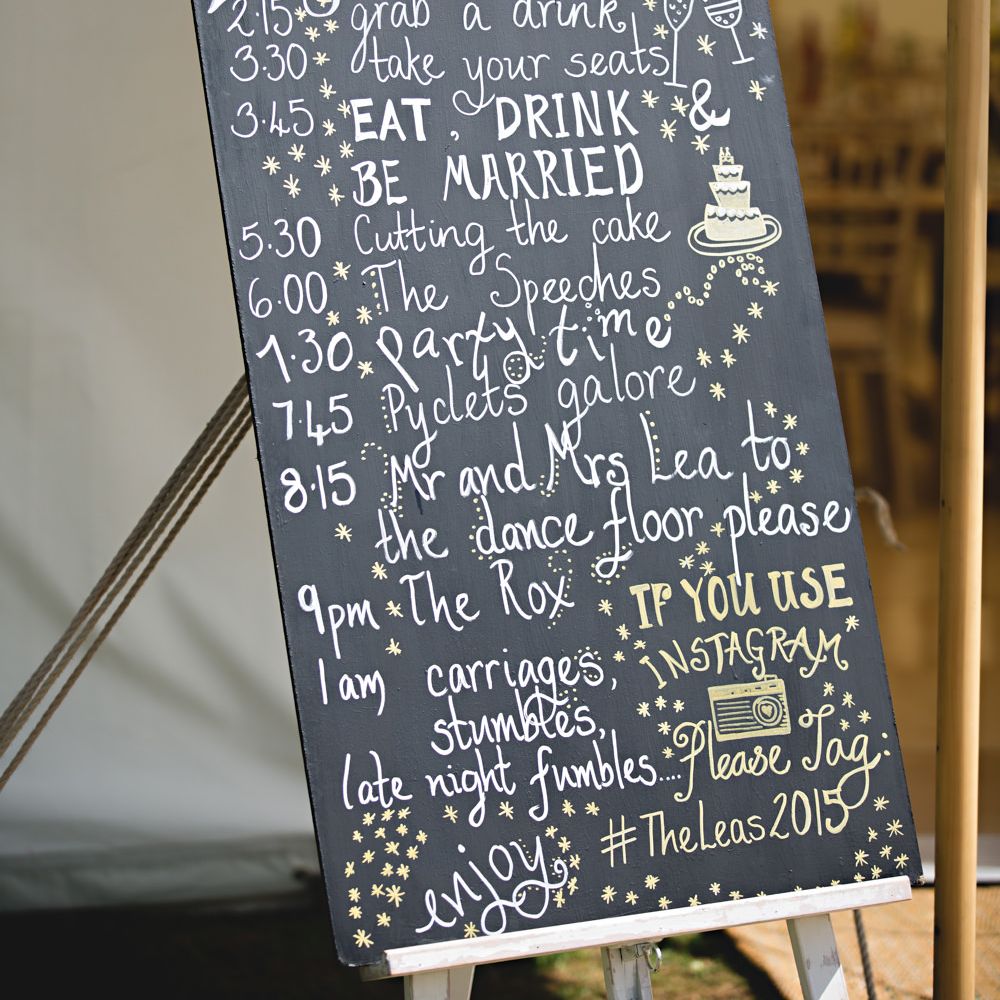 2.15 grab a drink
3.30 take your seats
3.45 EAT, DRINK &
BE MARRIED
5.30 Cutting the cake
6.00 The Speeches
7.30 Party time
7.45 Pyclets galore
8.15 Mr and Mrs Lea to
the dance floor please
9pm The Rox
1am carriages,
stumbles,
late night fumbles....
enjoy
IF YOU USE
INSTAGRAM
Please Tag:
#TheLeas2015